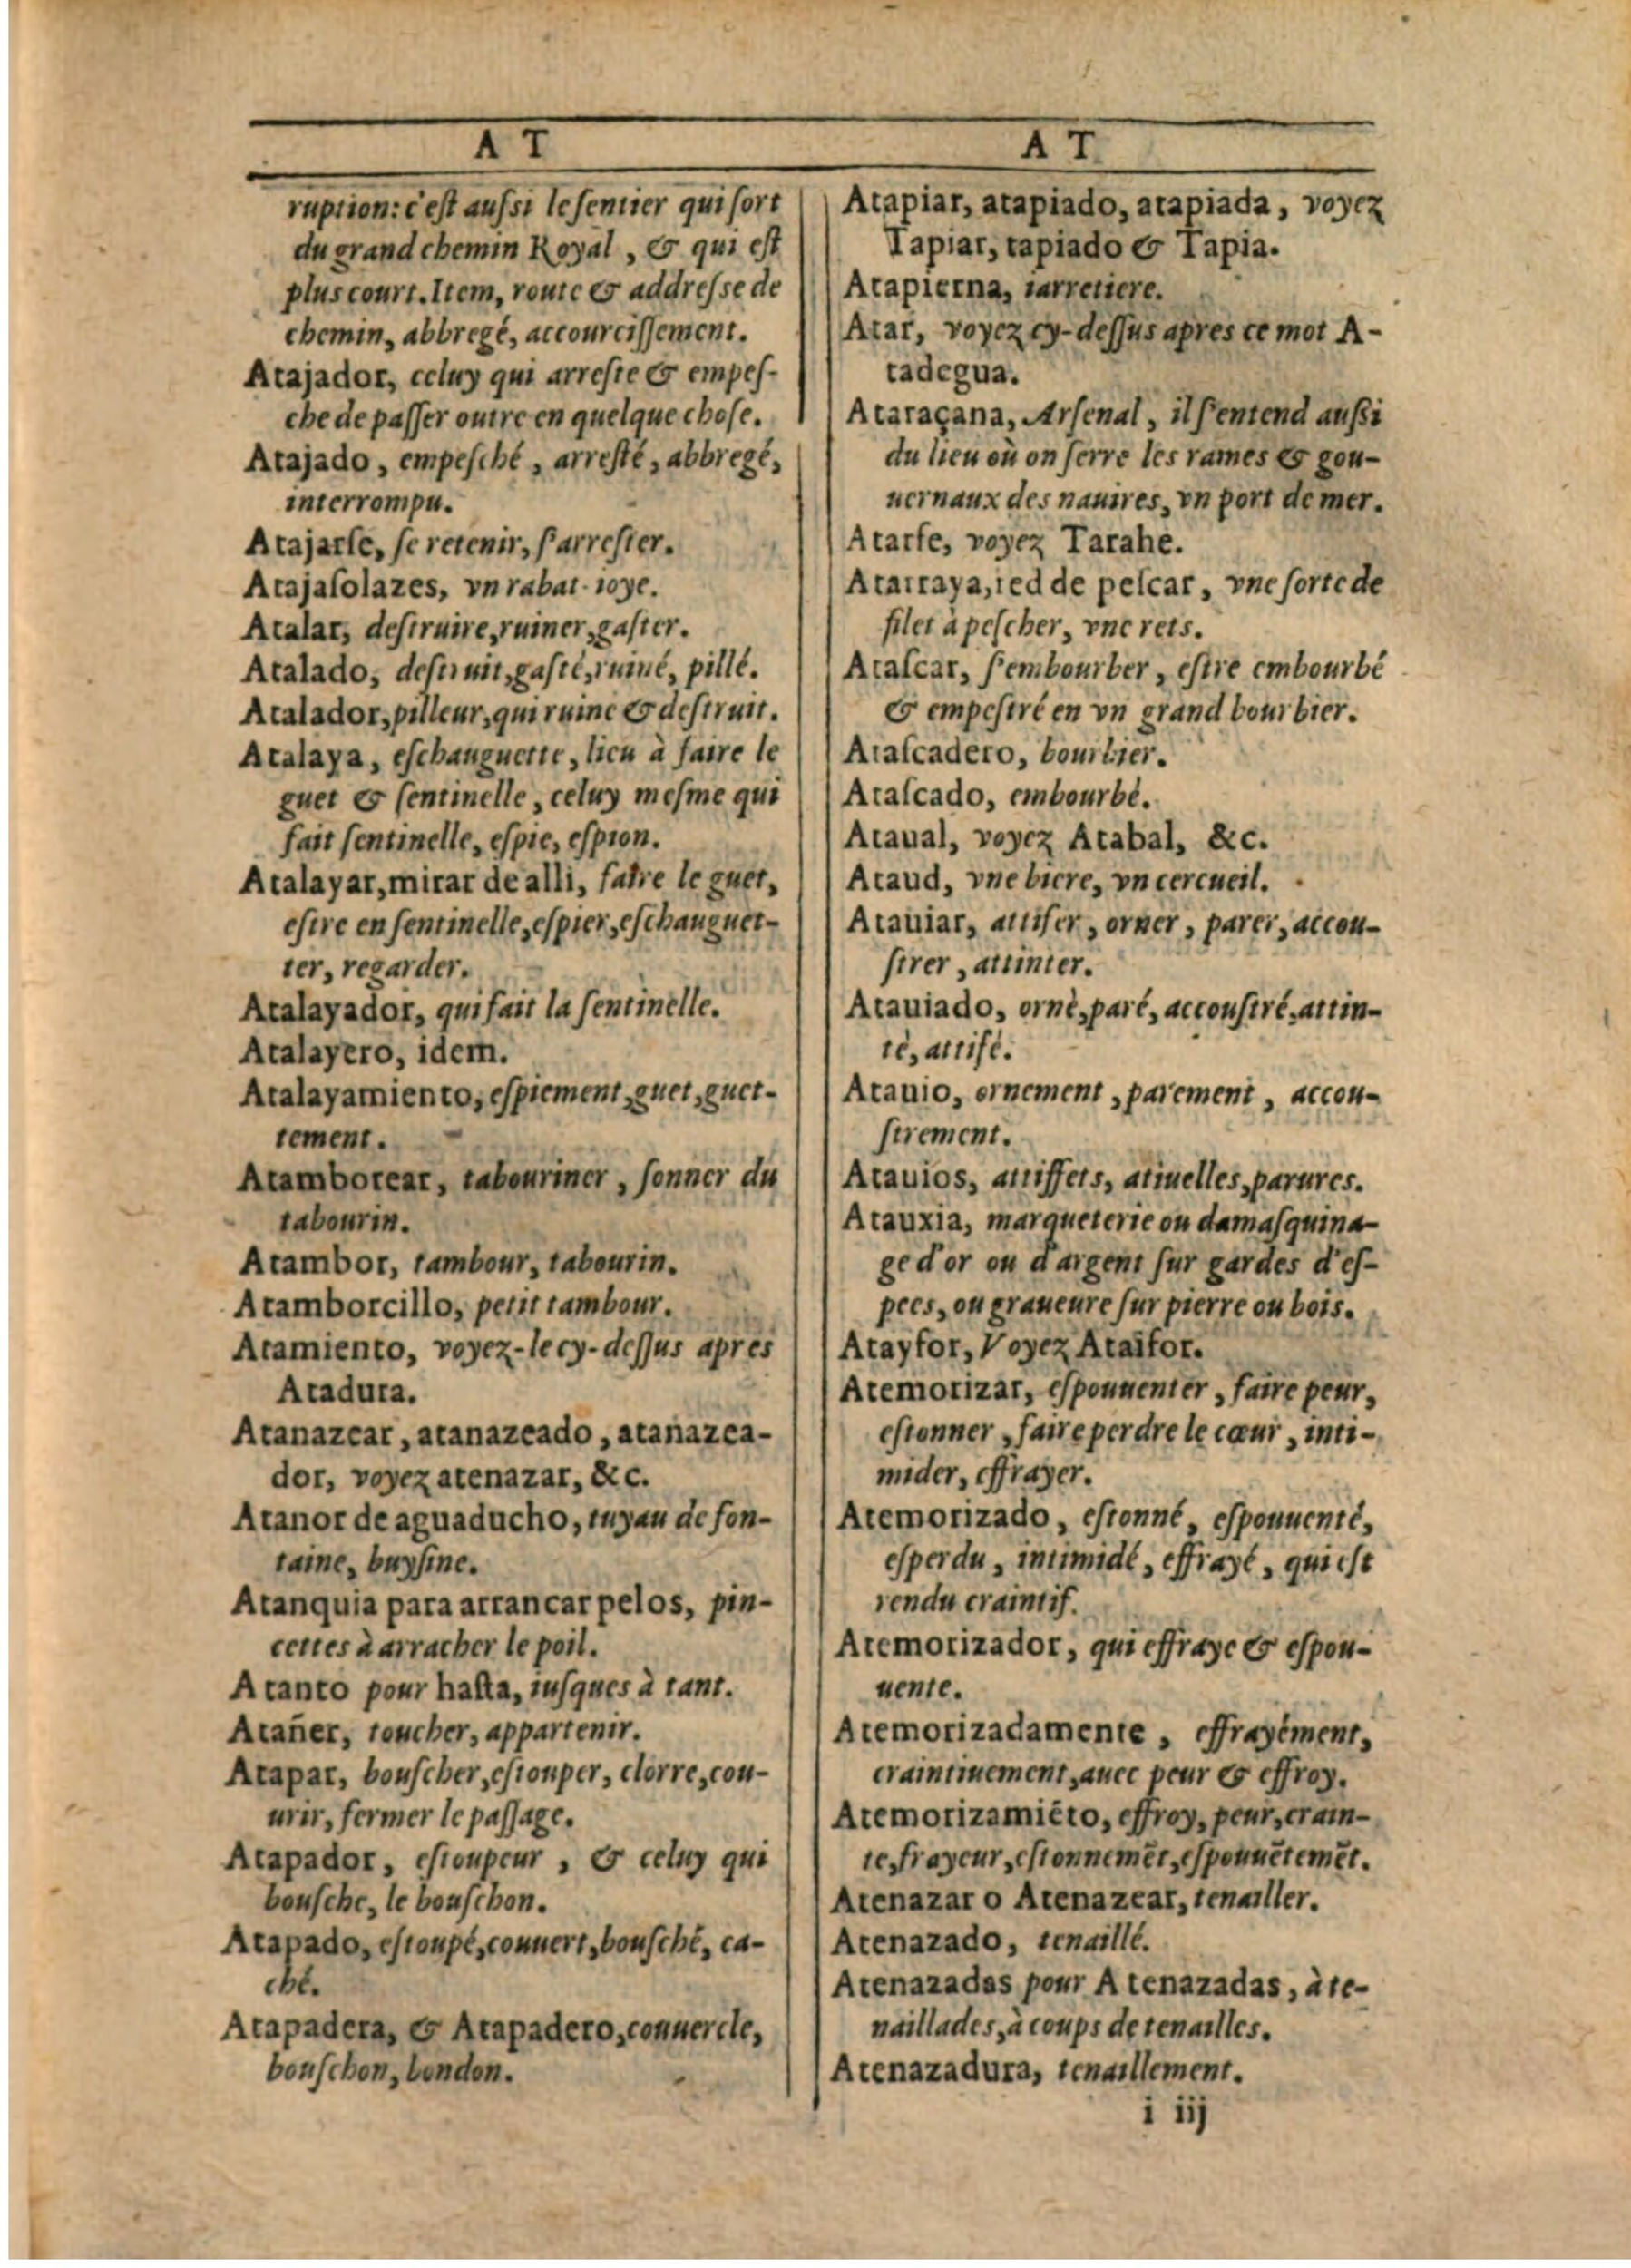 A T
ruption: c'eſt auſsi le ſentier qui ſort
du grand chemin Royal, & qui eſt
plus court. Item, route & addreſse de
chemin, abbregé, accourciſſement.
Atajador, celuy qui arreſte & empeſ-
che de paſſer outre en quelque choſe.
Atajado, empeſché, arreſté, abbregé,
interrompu.
Atajarſe, ſe retenir, ſ'arreſter.
Atajaſolazes, vn rabat-ioye.
Atalar, deſtruire, ruiner, gaſter.
Atalado, deſtruit, gaſté, ruiné, pillé.
Atalador, pilleur, qui ruine & deſtruit.
Atalaya, eſchauguette, lieu à faire le
guet & ſentinelle, celuy meſme qui
fait ſentinelle, eſpie, eſpion.
Atalayar, mirar de alli, faire le guet,
eſtre en ſentinelle, eſpier, eſchauguet-
ter, regarder.
Atalayador, qui fait la ſentinelle.
Atalayero, idem.
Atalayamiento, eſpiement, guet, guet-
tement.
Atamborear, tabouriner, ſonner du
tabourin.
Atambor, tambour, tabourin.
Atamborcillo, petit tambour.
Atamiento, voyez-le cy-deſſus apres
Atadura.
Atanazear, atanazeado, atanazea-
dor, voyez atenazar, &c.
Atanor de aguaducho, tuyau de fon-
taine, buyſine.
Atanquia para arrancar pelos, pin-
cettes à arracher le poil.
Atanto pour haſta, iuſques à tant.
Atañer, toucher, appartenir.
Atapar, bouſcher, eſtouper, clorre, cou-
urir, fermer le paſſage.
Atapador, eſtoupeur, & celuy qui
bouſche, le bouſchon.
Atapado, eſtoupé, couuert, bouſché, ca-
ché.
Atapadera, & Atapadero, couuercle,
bouſchon, bondon.
A T
Atapiar, atapiado, atapiada, voyez
Tapiar, tapiado & Tapia.
Atapierna, iarretiere.
Atar, voyez cy-deſſus apres ce mot A-
tadegua.
Ataraçana, Arſenal, il ſ'entend auſsi
du lieu où on ſerre les rames & gou-
uernaux des nauires, vn port de mer.
Atarfe, voyez Tarahe.
Atarraya, red de peſcar, vne ſorte de
filet à peſcher, vne rets.
Ataſcar, ſ'embourber, eſtre embourbé
& empeſtré en vn grand bourbier.
Ataſcadero, bourbier.
Ataſcado, embourbé.
Ataual, voyez Atabal, &c.
Ataud, vne biere, vn cercueil.
Atauiar, attifer, orner, parer, accou-
ſtrer, attinter.
Atauiado, orné, paré, accouſtré, attin-
té, attifé.
Atauio, ornement, parement, accou-
ſtrement.
Atauios, attiffets, atiuelles, parures.
Atauxia, marqueterie ou damaſquina-
ge d'or ou d'argent ſur gardes d'eſ-
pees, ou graueure ſur pierre ou bois.
Atayfor, Voyez Ataifor.
Atemorizar, eſpouuenter, faire peur,
eſtonner, faire perdre le cœur, inti-
mider, effrayer.
Atemorizado, eſtonné, eſpouuenté,
eſperdu, intimidé, effrayé, qui eſt
rendu craintif.
Atemorizador, qui effraye & eſpou-
uente.
Atemorizadamente, effrayément,
craintiuement, auec peur & effroy.
Atemorizamiẽto, effroy, peur, crain-
te, frayeur, eſtonnemẽt, eſpouuẽtemẽt.
Atenazar o Atenazear, tenailler.
Atenazado, tenaillé.
Atenazadas pour A tenazadas, à te-
naillades, à coups de tenailles.
Atenazadura, tenaillement.
i iij